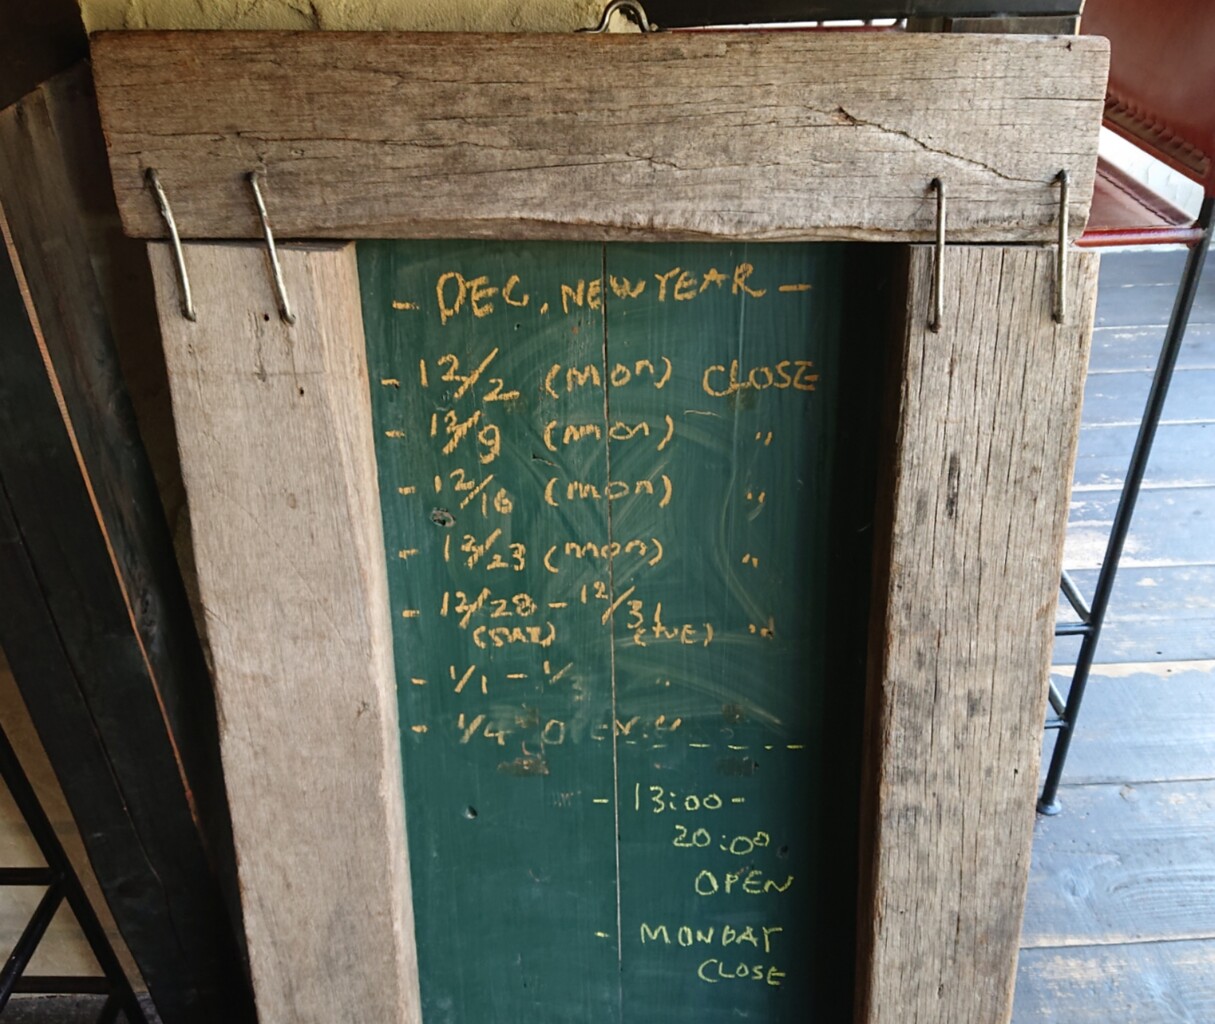 - DEC, NEW YEAR -
- 12/2 (mon) CLOSE
- 12/9 (mon) "
- 12/16 (mon) "
- 12/23 (mon) "
- 12/28 - 12/31 "
(SAT) (TUE)
- 1/1 - 1/3 "
- 1/4 OPEN
- 13:00-
20:00
OPEN
- MONDAY
CLOSE